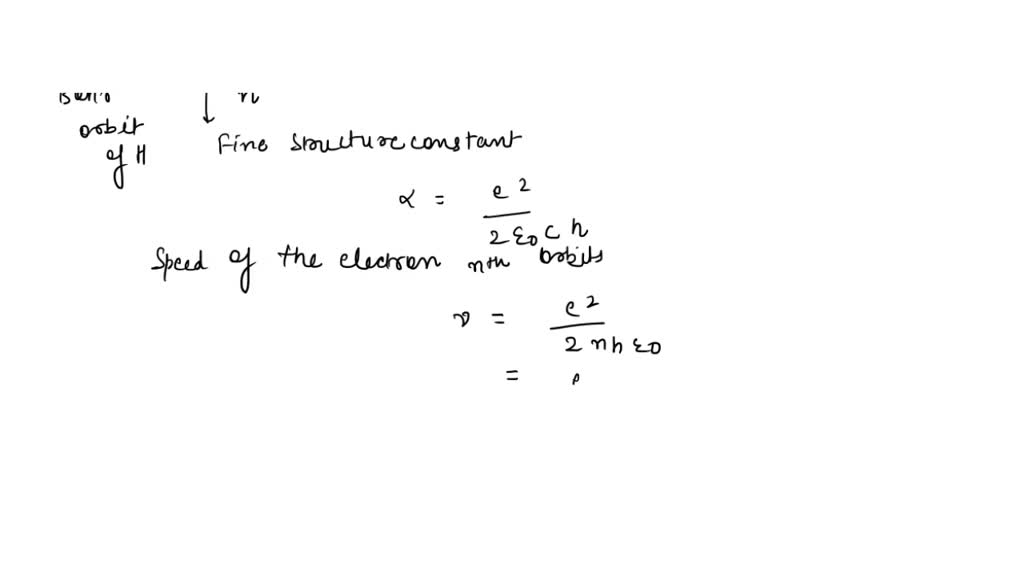 n
orbit
of H
Fine structure constant
α = e²
2 ε0 c h
Speed of the electron nth orbits
v = e²
2 n h ε0
=